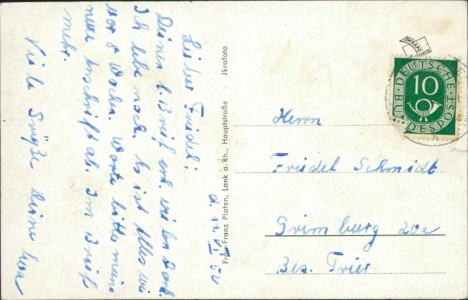 Lieber Friedel!
Deinen l. Brief erh. vielen Dank.
Ich lebe noch. Es ist Alles wie
vor 8 Wochen. Warte bitte meine
neue Anschrift ab. Im Brief
mehr.
Viele Grüße Deine
Frau Franz Platen, Lank a. Rh., Hauptstraße Jkrafoto
Herrn
Friedel Schmidt
Grimburg 20a
Bez. Trier
DEUTSCHE BUNDESPOST
10